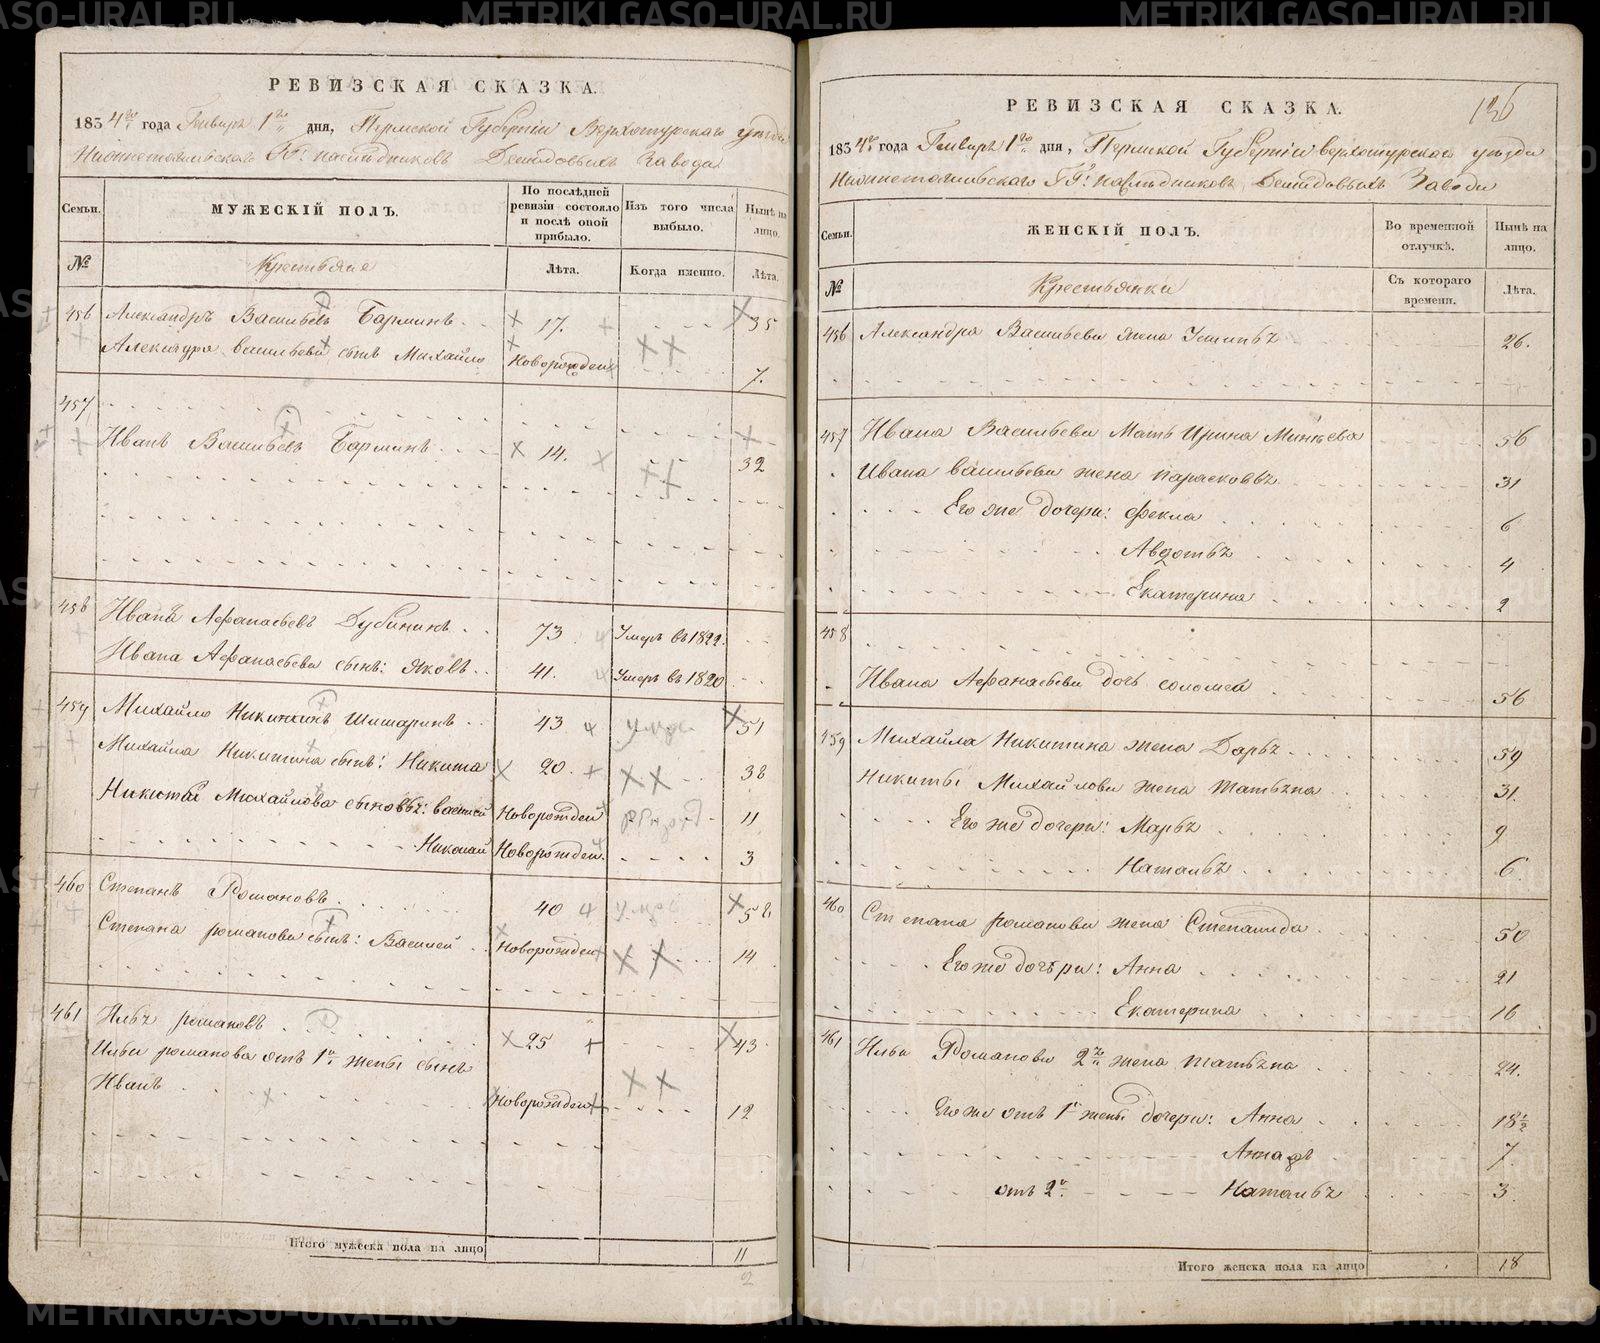 METRIKI.GASO-URAL.RU
РЕВИЗСКАЯ СКАЗКА.
1834го года Генваря 1го дня, Пермской Губернiи Верхотурскаго уезда
Нижнетагильскаго ГГ: наследниковъ Демидовыхъ Завода
Семьи.
МУЖЕСКIЙ ПОЛЪ.
По послѣдней ревизiи состояло и послѣ оной прибыло.
Изъ того числа выбыло.
Нынѣ на лицо.
№
Крестьяне
Лѣта.
Когда именно.
Лѣта.
456 Александръ Васильевъ Барминъ 17. 35
Александра васильева сынъ Михайло Новорожден 7.
457
Иванъ Васильевъ Барминъ 14. 32
458 Иванъ Афанасьевъ Дубининъ 73 Умеръ въ 1822.
Ивана Афанасьева сынъ: Яковъ 41. Умеръ въ 1820
459 Михайло Никитинъ Шишаринъ 43 51
Михайла Никитина сынъ: Никита 20. 38
Никиты Михайлова сыновья: василей Новорожден 11
Николай Новорожден. 3
460 Степанъ Романовъ 40 58
Степана романова сынъ: Василей Новорожден 14
461 Илья романовъ 25 43
Ильи романова отъ 1й жены сынъ
Иванъ Новорожден 12
Итого мужеска пола на лицо 11
2
126
РЕВИЗСКАЯ СКАЗКА.
1834го года Генваря 1го дня, Пермской Губернiи верхотурскаго уезда
Нижнетагильскаго ГГ: наследниковъ Демидовыхъ Завода
Семьи.
ЖЕНСКIЙ ПОЛЪ.
Во временной отлучкѣ.
Нынѣ на лицо.
№
Крестьянки
Съ котораго времени.
Лѣта.
456 Александра Васильева жена Устинья 26.
457 Ивана Васильева Мать Ирина Минеева 56
Ивана васильева жена парасковья 31
Его же дочери: Фекла 6
Авдотья 4
Екатерина 2
458
Ивана Афанасьева дочь соломея 56
459 Михайла Никитина жена Дарья 59
Никиты Михайлова жена татьяна 31.
Его же дочери: Марья 9
Наталья 6
460 Степана романова жена Степанида 50
Его же дочери: Анна 21
Екатерина 16
461 Ильи Романова 2я жена татьяна 24.
Его же отъ 1й жены дочери: Анна 18½
7
отъ 2й Наталья 3
Итого женска пола на лицо 18